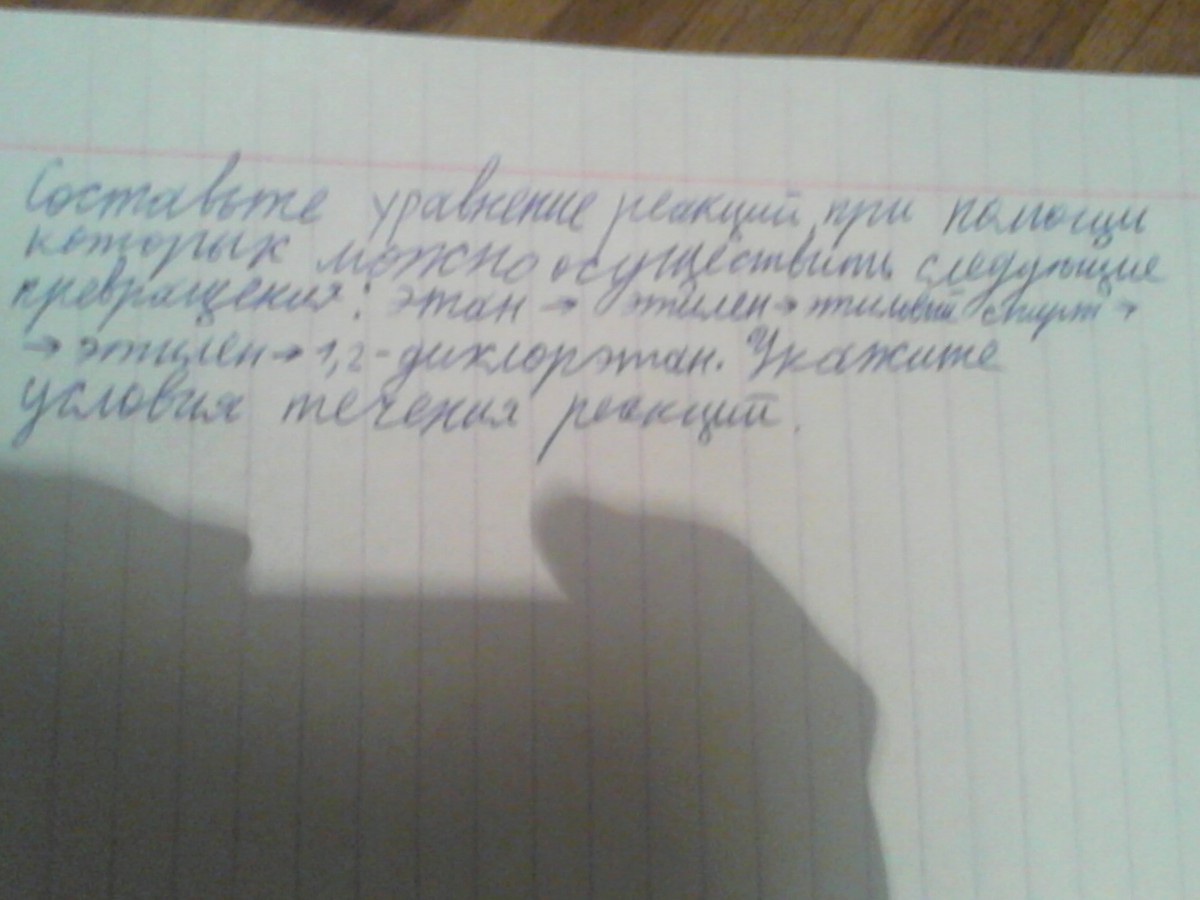 Составьте уравнение реакций, при помощи
которых можно осуществить следующие
превращения: этан → этилен → этиловый спирт →
→ этилен → 1,2-дихлорэтан. Укажите
условия течения реакций.